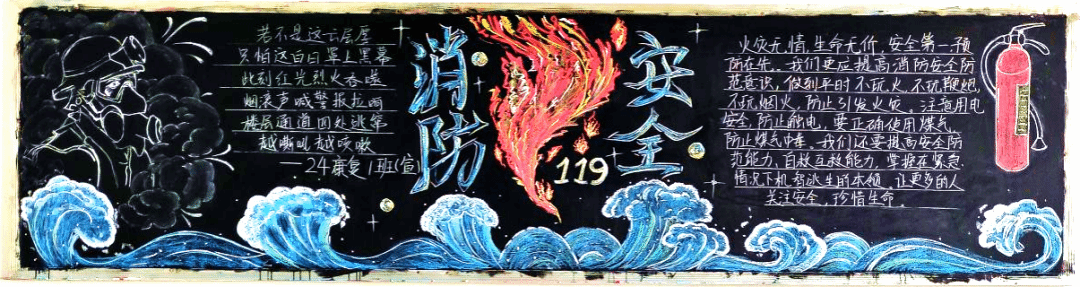 若不是这云层厚
只怕这白日罩上黑幕
此刻红光烈火吞噬
烟表声喊警报拉响
楼层通道四处逃窜
越嘶吼越咳嗽
—24康复1班(宣)
消防
安全
119
火灾无情,生命无价,安全第一,预
防在先。我们更应提高消防安全防
范意识,做到平时不玩火、不玩鞭炮,
不玩烟火,防止引发火灾。注意用电
安全,防止触电,要正确使用煤气,
防止煤气中毒。我们还要提高安全防
范能力,自救互救能力,掌握在紧急
情况下机智逃生的本领。让更多的人
关注安全,珍惜生命。